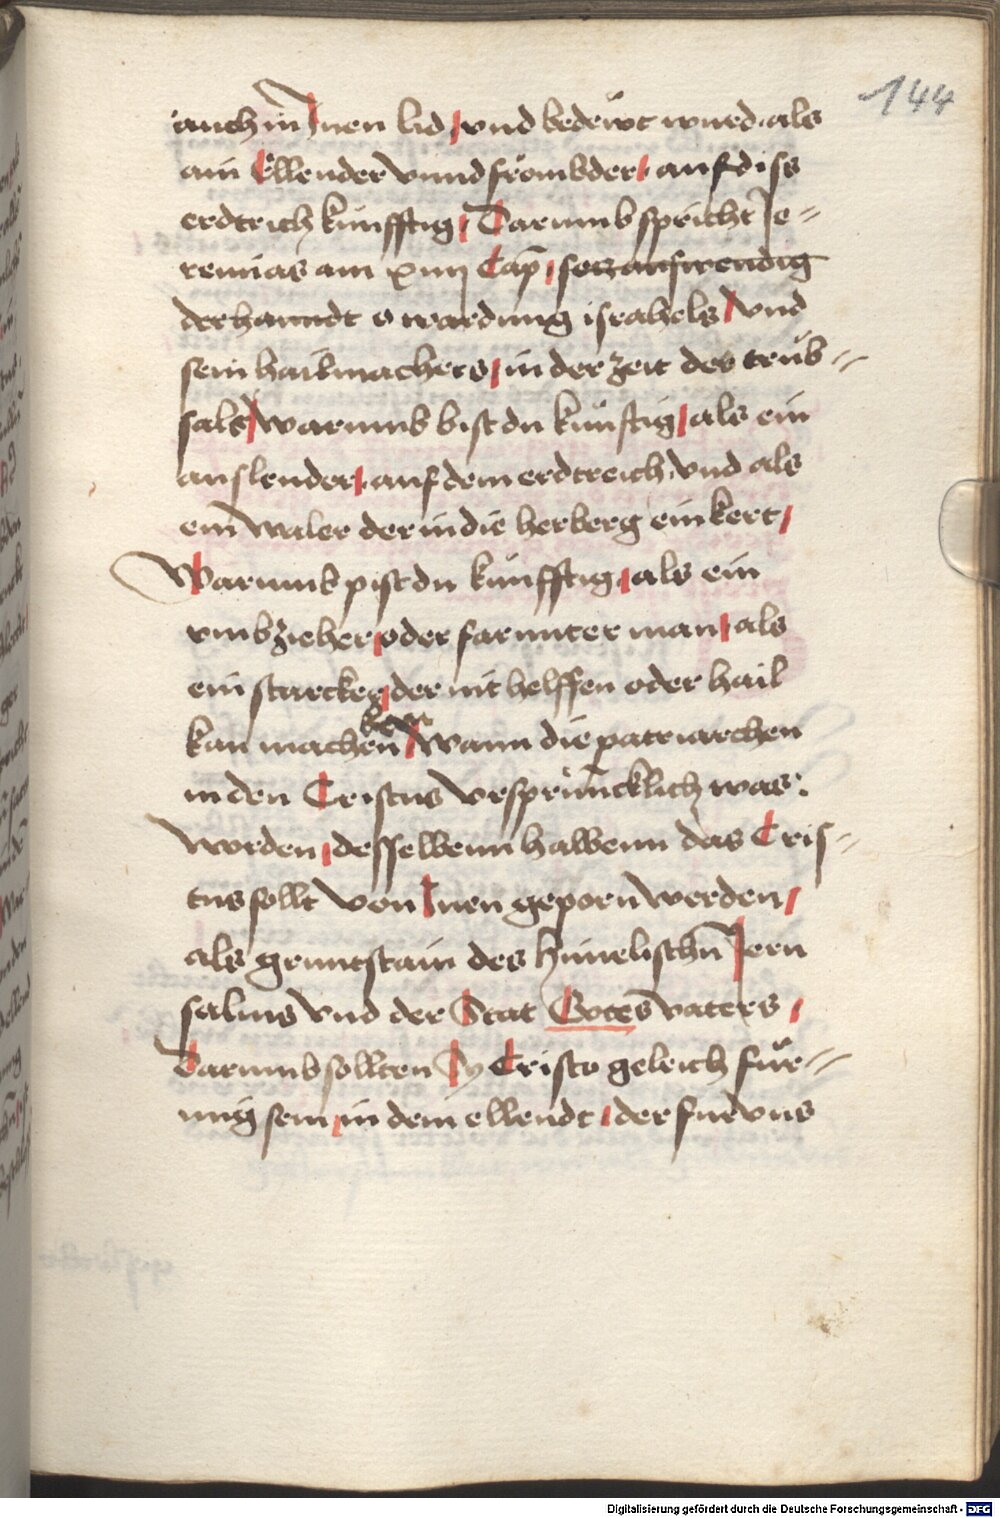 144
auch in Inen lid / vnd bedeẅt wurd. als
ain Ellender vnnd frömbder / auf diss
erdtrich künfftig / Darumb spricht Je=
remias am xiiij Cap̄ / setz auswendig
der hanndt o wardung israhels / vnd
sein hailmachers / in der zeit des trüb=
sals / warumb bist du künftig / als ein
auslender / auf dem erdtreich vnd als
ein waler der in die herberg ein kert /
Warumb pist du künfftig / als ein
vmbzieher / oder farunter man / als
ein starcker / der nit helffen oder hail
kan machen / Wann die patriarchen
in den Cristus vrsprüncklich was:
worden / desselbenn halbenn das Cris=
tus sollt von Inen geporn werden /
als gruntstain des himelischn̄ Jeru
salms vnd der Stat Gotes vaters /
Darumb sollten Sy Cristo geleich für=
mig sein / in dem ellendt / der fur vns
Digitalisierung gefördert durch die Deutsche Forschungsgemeinschaft - DFG